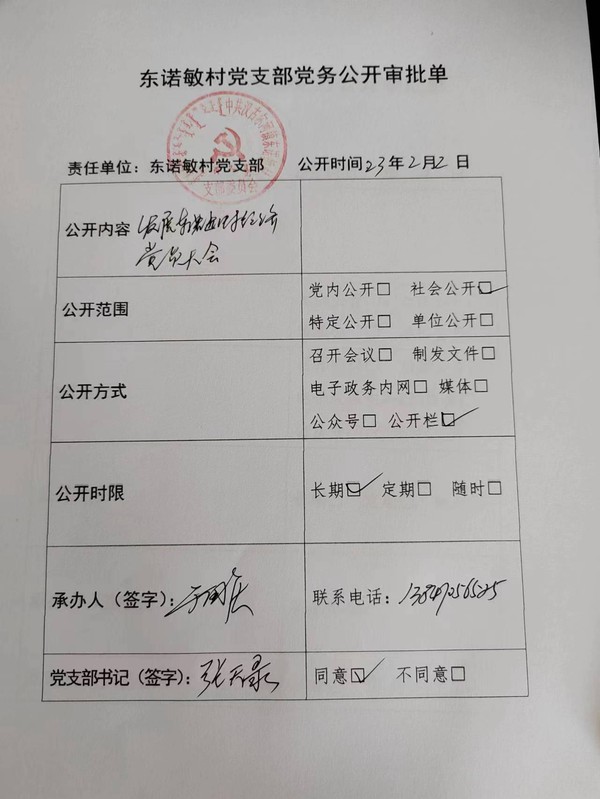 东诺敏村党支部党务公开审批单
责任单位：东诺敏村党支部 公开时间23年2月2日
支部委员会
公开内容 发展东诺敏村经济
党员大会
公开范围 党内公开□ 社会公开☑
特定公开□ 单位公开□
公开方式 召开会议□ 制发文件□
电子政务内网□ 媒体□
公众号□ 公开栏☑
公开时限 长期☑ 定期□ 随时□
承办人（签字）： 联系电话：
党支部书记（签字）：张天录 同意☑ 不同意□